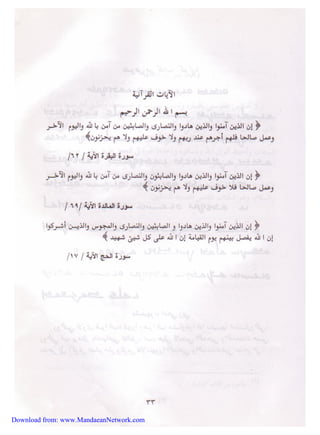 الآيات القرآنية
بسم الله الرحمن الرحيم
﴿ إن الذين آمنوا والذين هادوا والنصارى والصابئين من آمن بالله واليوم الآخـر
وعمل صالحاً فلهم أجرهم عند ربهم ولا خوف عليهم ولا هم يحزنون﴾
سورة البقرة الآية / ٦٢/
﴿ إن الذين آمنوا والذين هادوا والصابئون والنصارى من آمن بالله واليوم الآخـر
وعمل صالحاً فلا خوف عليهم ولا هم يحزنون ﴾
سورة المائدة الآية / ٦٩/
﴿ إن الذين آمنوا والذين هادوا و الصابئين والنصارى والمجوس والذيـن أشركوا
إن الله يفصل بينهم يوم القيامة إن الله على كل شيئ شهيد ﴾
سورة الحج الآية / ١٧/
٣٣
Download from: www.MandaeanNetwork.com